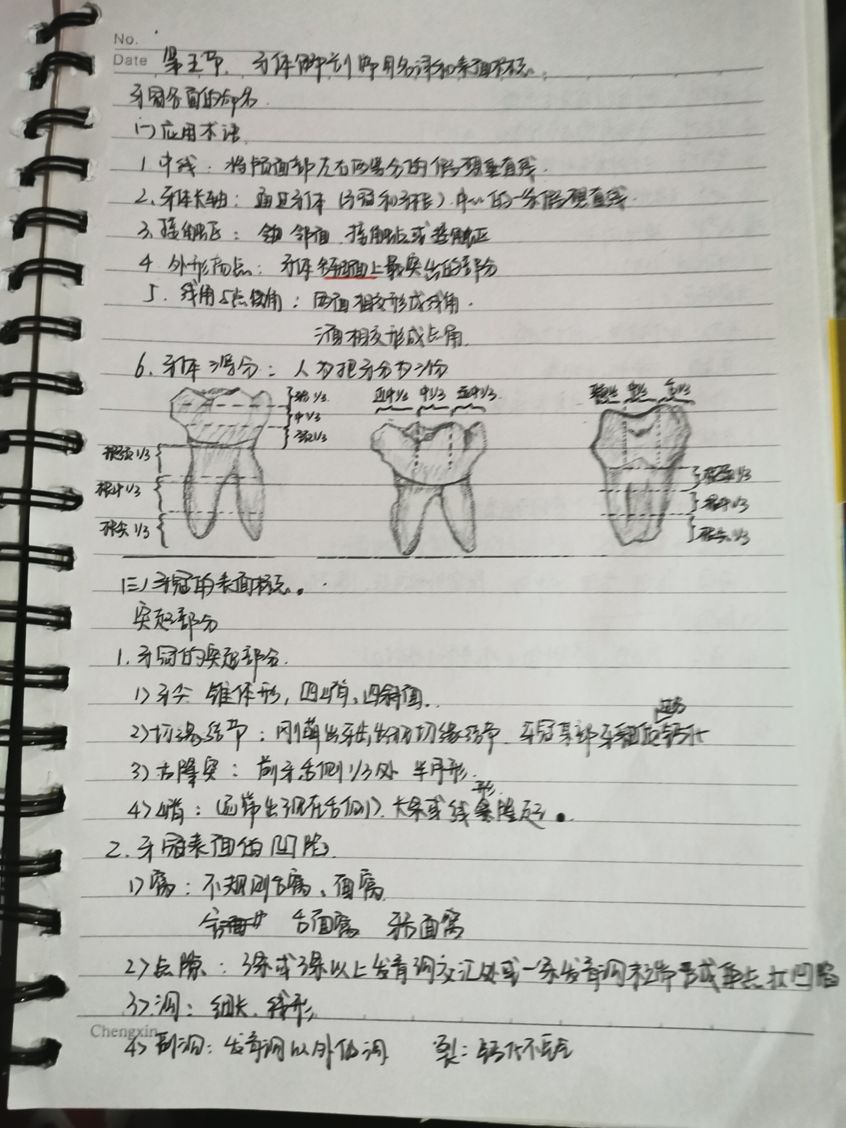 No.
Date 第三节、牙体解剖即用名译和表面标志.
牙冠各面的命名.
(一)应用术语
1. 中线：将颅面部左右两等分的假想垂直线.
2. 牙体长轴：通过牙体(牙冠和牙根)中心的一条假想直线.
3. 接触区：邻面 接触点或接触区
4. 外形高点：牙体各轴面上最突出的部分
5. 线角与点角：两面相交形成线角.
三面相交形成点角.
6. 牙体三等分：人为把牙分为三份
𬌗1/3
中1/3
颈1/3
近中1/3 中1/3 远中1/3
中1/3
根颈1/3
根中1/3
根尖1/3
根颈1/3
根中1/3
根尖1/3
(三)牙冠的表面标志.
突起部分
1. 牙冠的突起部分.
1) 牙尖 锥体形，四嵴，四斜面.
2) 切缘结节：刚萌出牙齿切缘结节. 牙冠 牙釉质钙化
3) 舌隆突：前牙舌侧1/3处 半月形.
4) 嵴：(通常出现在舌侧). 长条或线形隆起.
2. 牙冠表面的凹陷
1) 窝：不规则舌窝、面窝
舌面窝 𬌗面窝
2) 点隙：3条或3条以上发育沟交汇处或一条发育沟末端形成点状凹陷
3) 沟：细长、线形
Chengxin
4) 副沟：发育沟以外的沟 裂：钙化不全